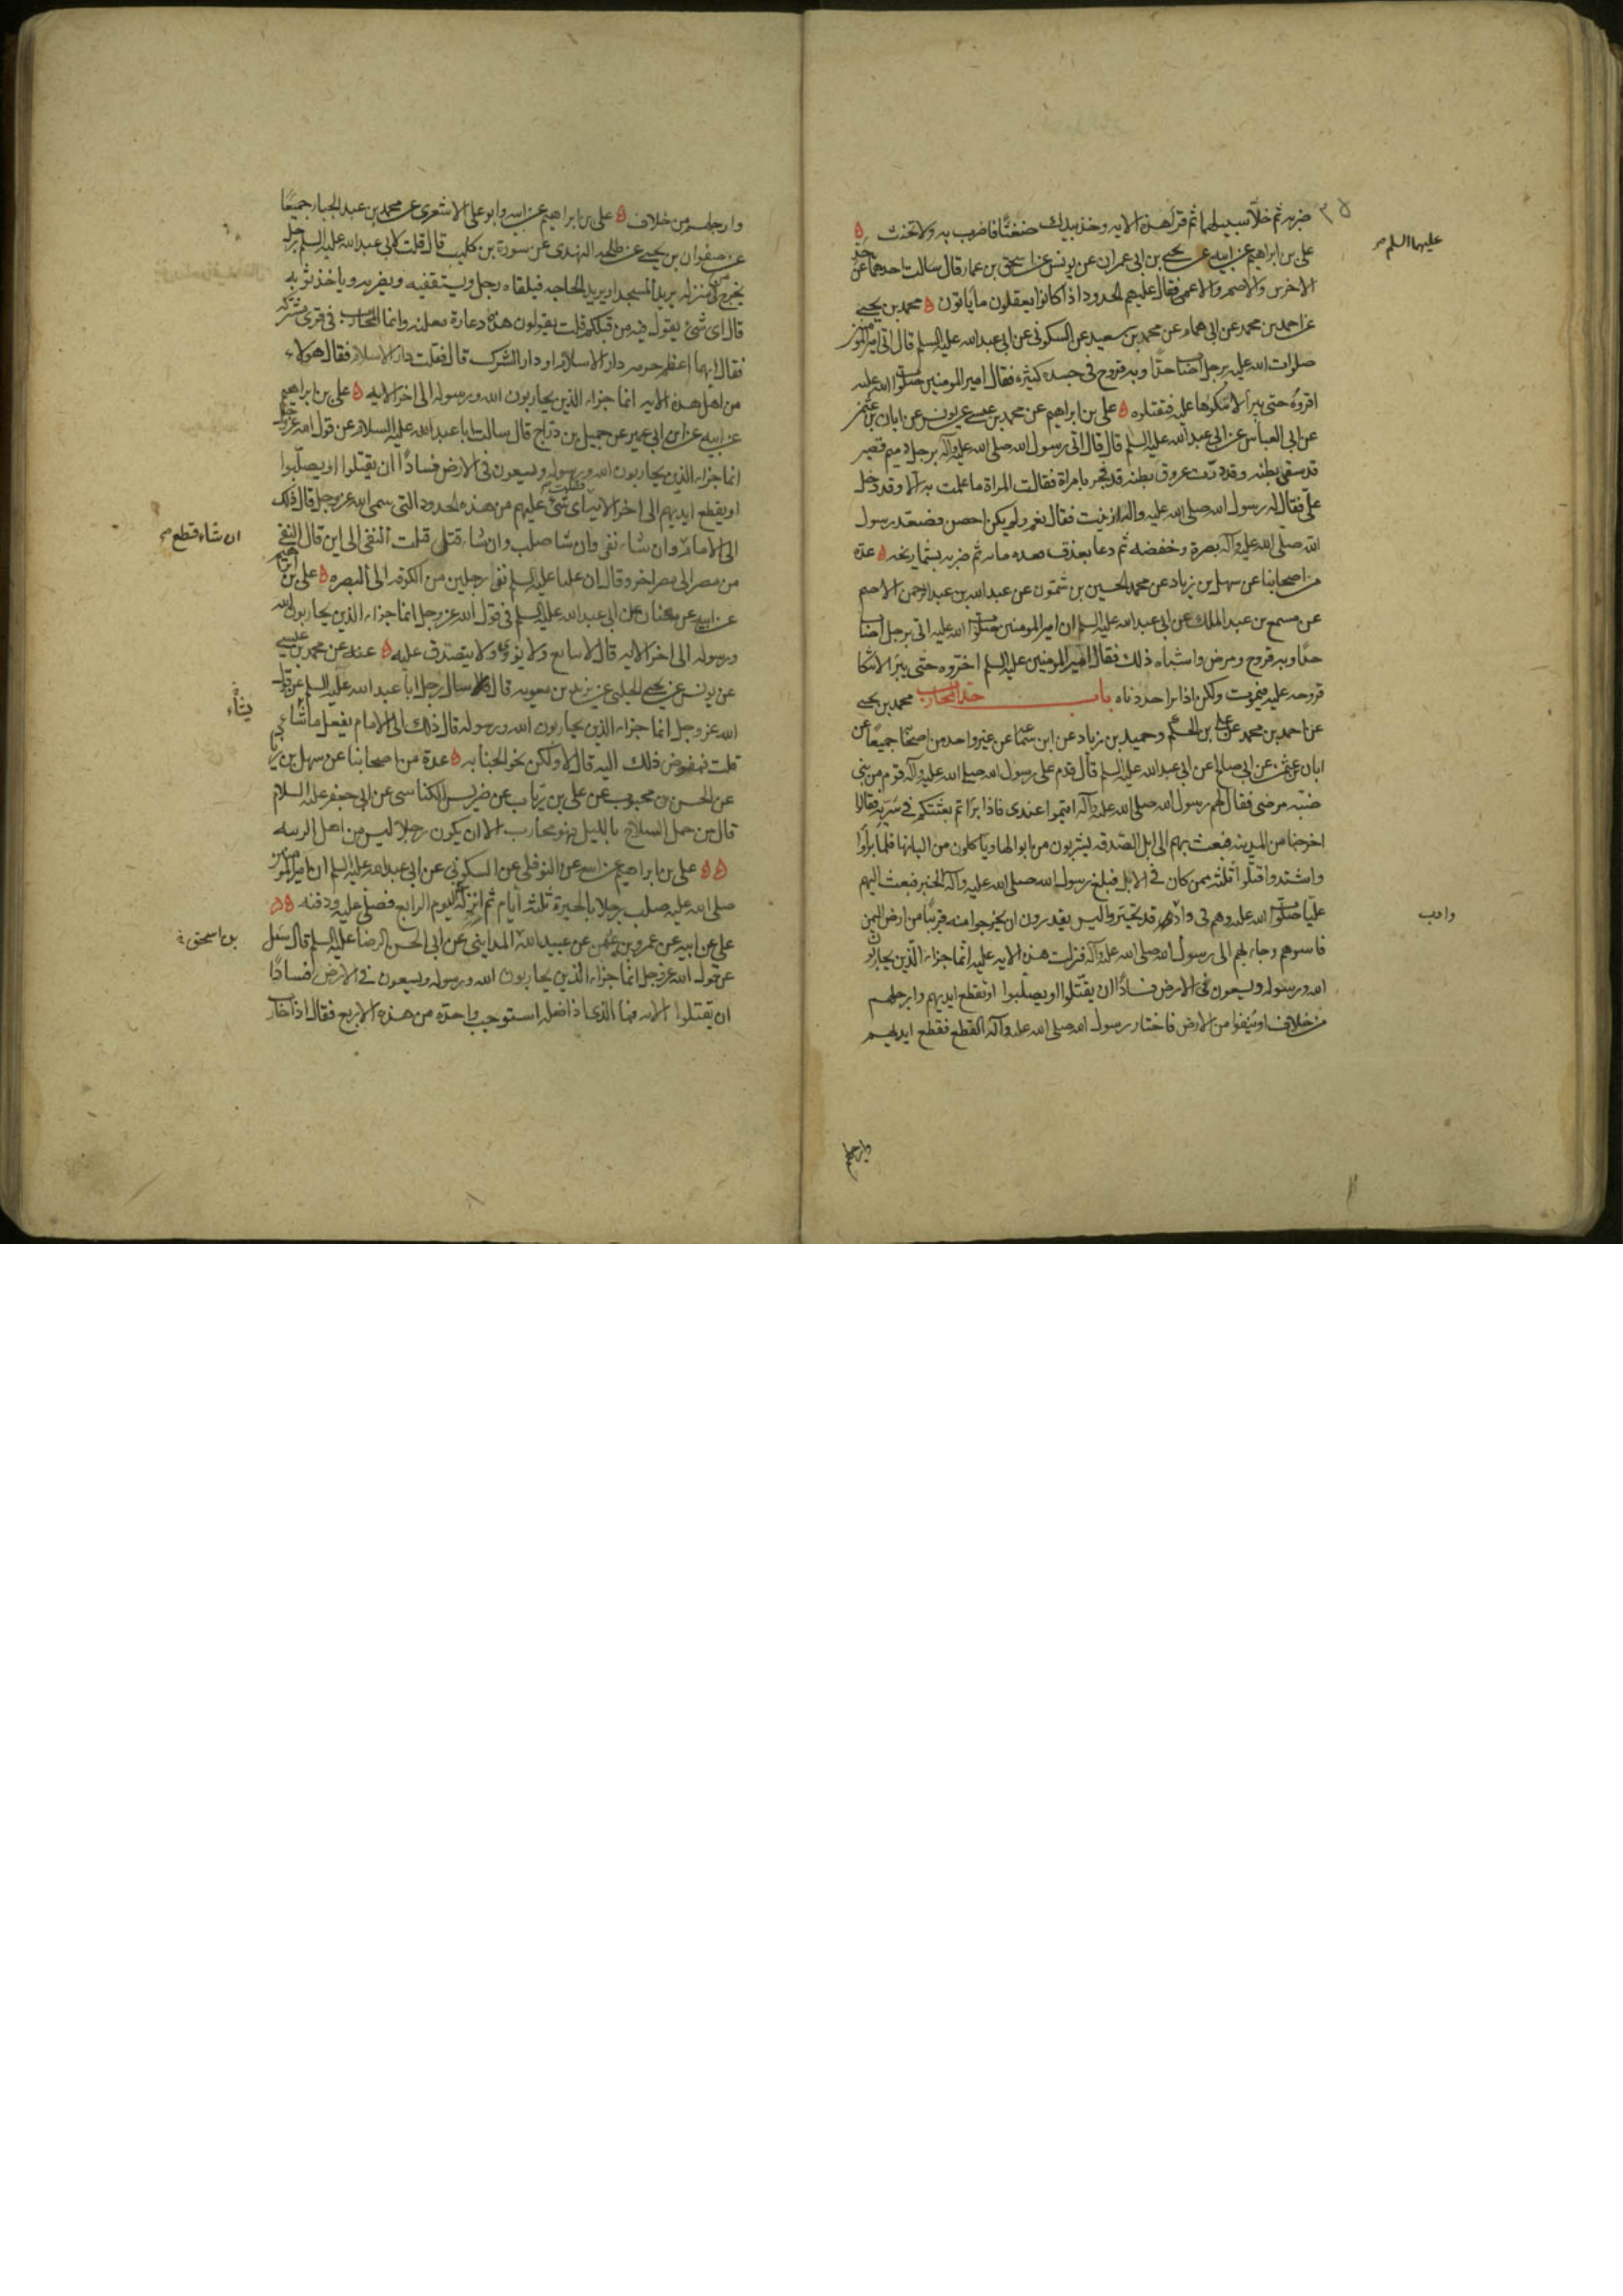 ضربه ثم خلا سبيلهما ثم قرا هذه الايه وخذ بيدك ضغثًا فاضرب به ولا تحنث
علي بن ابراهيم عن ابيه عن يحيى بن ابي عمران عن يونس عن اسحق بن عمار قال سالت احدهما عن حد
عليهما السلم
الاخرس والاصم والاعمى فقال عليهم الحدود اذا كانوا يعقلون ما ياتون محمد بن يحيى
عن احمد بن محمد عن ابي همام عن محمد بن سعيد عن السكوني عن ابي عبد الله عليه السلم قال اتى امير المومنين
صلوات الله عليه برجل اصاب حدًا وبه قروح في جسده كثيره فقال امير المومنين صلوات الله عليه
اقروه حتى يبرأ لا تنكوها عليه فتقتلوه علي بن ابراهيم عن محمد بن عيسى عن يونس عن ابان بن عثمن
عن ابي العباس عن ابي عبد الله عليه السلم قال قال اتى رسول الله صلى الله عليه وآله برجل دميم قصير
قد سقى بطنه وقد درّت عروق بطنه قد فجر بامراة فقالت المراة ما علمت به الا وقد دخل
عليّ فقال له رسول الله صلى الله عليه واله ازنيت فقال نعم ولم يكن احصن فصعّد رسول
الله صلى الله عليه وآله بصره وخفضه ثم دعا بعذق فعده مايه ثم ضربه بشماريخه عدّه
من اصحابنا عن سهل بن زياد عن محمد الحسين بن شمّون عن عبد الله بن عبد الرحمن الاصم
عن مسمع بن عبد الملك عن ابي عبد الله عليه السلم ان امير المومنين صلوات الله عليه اتى برجل اصاب
حدًا وبه قروح ومرض واشباه ذلك فقال امير المومنين عليه السلم اخّروه حتى يبرَا لا تنكا
قروحه عليه فيموت ولكن اذا برا حددناه باب حد المحارب محمد بن يحيى
عن احمد بن محمد عن علي بن الحكم وحميد بن زياد عن ابن سماعه عن غير واحد من اصحابنا جميعًا عن
ابان بن عثمن عن ابي صالح عن ابي عبد الله عليه السلم قال قدم على رسول الله صلى الله عليه وآله قوم من بني
ضبّه مرضى فقال لهم رسول الله صلى الله عليه وآله اقيموا عندى فاذا براتم بعثتكم في سَرِيّه فقالوا
اخرجنا من المدينه فبعث بهم الى ابل الصّدقه ليشربون من ابوالها وياكلون من البانها فلما براوا
واشتدوا قتلوا ثلثه ممن كان في الابل فبلغ رسول الله صلى الله عليه وآله الخبر فبعث اليهم
عليّا صلوات الله عليه وهم في واد قد تحيّروا ليس يقدرون ان يخرجوا منه قريبًا من ارض اليمن
واد ب
فاسرهم وجاء بهم الى رسول الله صلى الله عليه وآله فنزلت هذه الايه عليه انّما جزاء الّذين يحاربون
الله ورسوله ويسعون في الارض فسادًا ان يقتّلوا او يصلّبوا او تقطع ايديهم وارجلهم
من خلاف او يُنفوا من الارض فاختار رسول الله صلى الله عليه وآله القطع فقطع ايديهم
وارجلهم
وارجلهم من خلاف علي بن ابراهيم عن ابيه وابو علي الاشعرى عن محمد بن عبد الجبار جميعًا
عن صفوان بن يحيى عن طلحه النهدى عن سورة بن كليب قال قلت لابي عبد الله عليه السلم رجل
يخرج من منزله يريد المسجد او يريد الحاجه فيلقاه رجل ويستقفيه ويضربه وياخذ ثوبه
قال اى شئ يقول فيه من قبلكم قلت يقولون هذه دعارة معلنه وانما المحارب في قرى مشركه
فقال ايهما اعظم حرمه دار الاسلام او دار الشرك قال فقلت دار الاسلام فقال هولاء
من اهل هذه الايه انما جزاء الذين يحاربون الله ورسوله الى اخر الايه علي بن ابراهيم
عن ابيه عن ابن ابي عمير عن جميل بن درّاج قال سالت ابا عبد الله عليه السلام عن قول الله عز وجل
انما جزاء الذين يحاربون الله ورسوله ويسعون في الارض فسادًا ان يقتلوا او يصلّبوا
او يقطع ايديهم الى اخر الايه فقلت اى شئ عليهم من هذه الحدود التي سمى الله عز وجل قال ذلك
الى الامام وان شاء نفى وان شا صلب وان شاء قتل قلت النفى الى اين قال النفى
ان شاء قطع
من مصر الى مصر اخر وقال ان عليا عليه السلم نفى رجلين من الكوفه الى البصره علي بن ابرهيم
عن ابيه عن حنان عن ابي عبد الله عليه السلم في قول الله عز وجل انما جزاء الذين يحاربون الله
ورسوله الى اخر الايه قال لا يبايع ولا يؤوى ولا يتصدق عليه عنه عن محمد بن عيسى
عن يونس عن يحيى الحلبى عن بريد بن معويه قال سال رجل ابا عبد الله عليه السلم عن قول
الله عز وجل انما جزاء الذين يحاربون الله ورسوله قال ذلك الى الامام يفعل ما شاء
يشاء
قلت فمفوض ذلك اليه قال لا ولكن نحو الجنايه عدة من اصحابنا عن سهل بن زياد
عن الحسن بن محبوب عن علي بن رياب عن ضريس الكناسى عن ابي جعفر عليه السلام
قال من حمل السلاح بالليل فهو محارب الا ان يكون رجلا ليس من اهل الريبه
علي بن ابراهيم عن ابيه عن النوفلي عن السكوني عن ابي عبد الله عليه السلم ان امير المومنين
صلى الله عليه صلب رجلا بالحيرة ثلثه أيام ثم انزله اليوم الرابع فصلى عليه ودفنه
علي عن ابيه عن عمرو بن عثمن عن عبيد الله المدايني عن ابي الحسن الرضا عليه السلم قال سئل
بن اسحق
عن قول الله عز وجل انما جزاء الذين يحاربون الله ورسوله ويسعون في الارض فسادًا
ان يقتلوا الايه فما الذى اذا فعله استوجب واحدة من هذه الاربع فقال اذا حارب